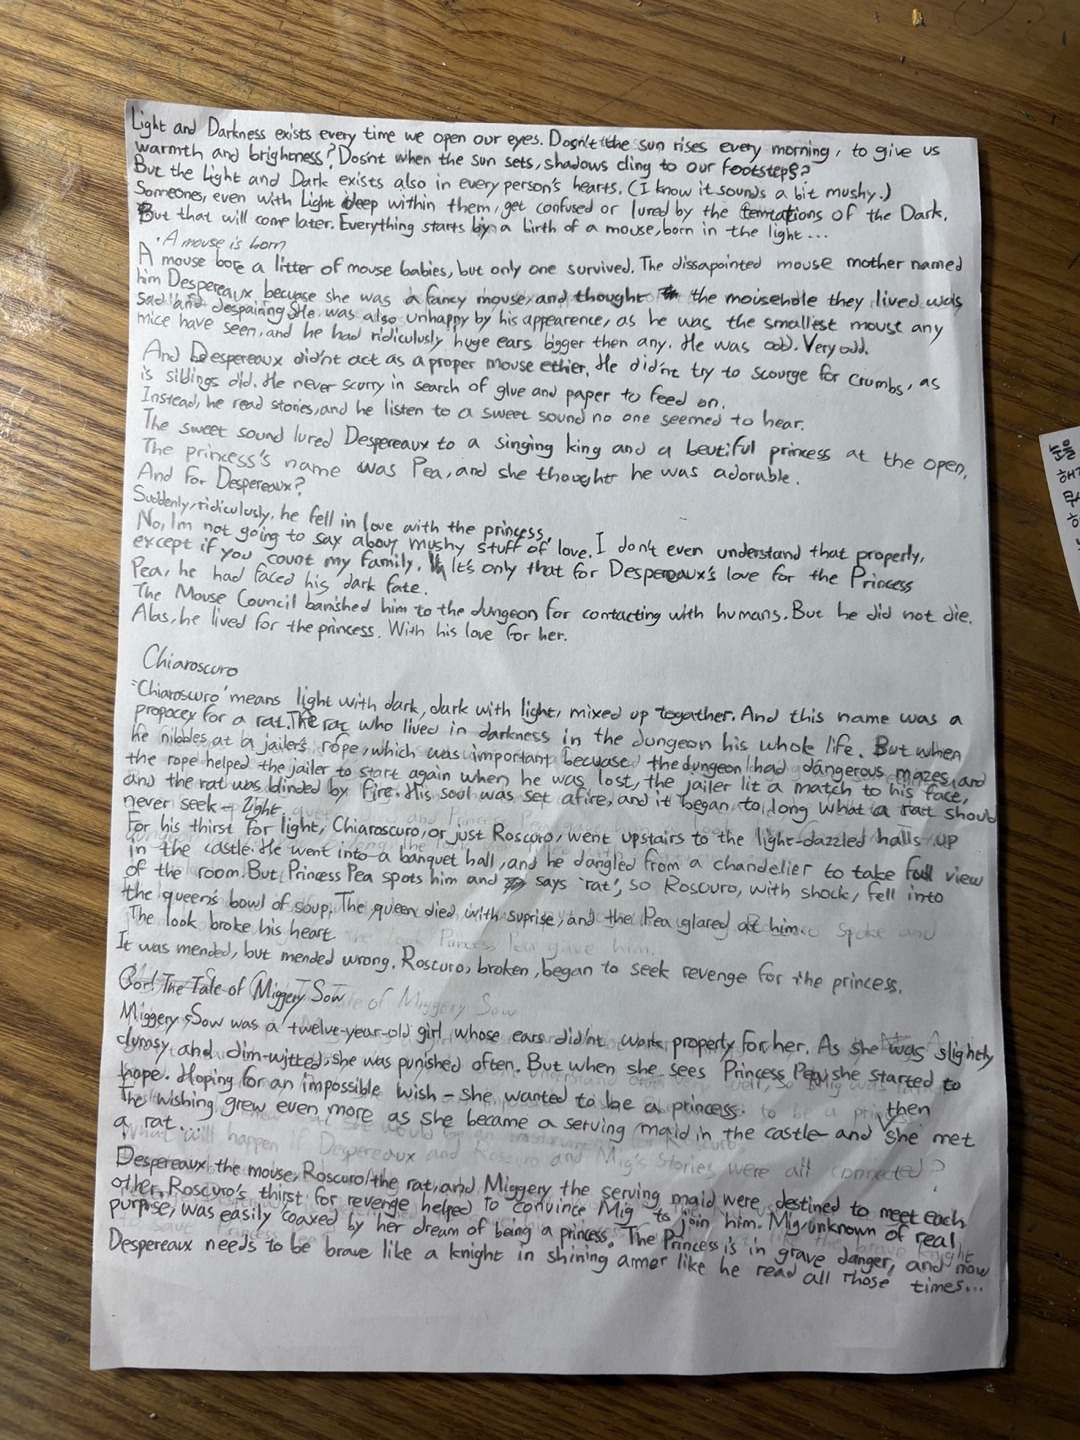 Light and Darkness exists every time we open our eyes. Dosn't the sun rises every morning, to give us
warmth and brighness? Dosnt when the sun sets, shadows cling to our footsteps?
But the Light and Dark exists also in every person's hearts. (I know it sounds a bit mushy.)
Someones, even with Light deep within them, get confused or lured by the temtations of the Dark.
But that will come later. Everything starts by a birth of a mouse, born in the light...
· A mouse is born
A mouse bore a litter of mouse babies, but only one survived. The dissapointed mouse mother named
him Despereaux becuase she was a fancy mouse, and thought the moisehole they lived was
sad and despaining. She was also unhappy by his appearence, as he was the smallest mouse any
mice have seen, and he had ridiculusly huge ears bigger then any. He was odd. Very odd.
And Despereaux didn't act as a proper mouse ethier. He did'nt try to scourge for crumbs, as
is siblings did. He never scurry in search of glue and paper to feed on.
Instead, he read stories, and he listen to a sweet sound no one seemed to hear.
The sweet sound lured Despereaux to a singing king and a beutiful princess at the open.
The princess's name was Pea, and she thought he was adorable.
And for Despereaux?
Suddenly, ridiculusly, he fell in love with the princess.
No, Im not going to say about mushy stuff of love. I don't even understand that properly,
except if you count my family. It's only that for Despereaux's love for the Princess
Pea, he had faced his dark fate.
The Mouse Council banished him to the dungeon for contacting with humans. But he did not die.
Alas, he lived for the princess. With his love for her.
Chiaroscuro
'Chiaroscuro' means light with dark, dark with light, mixed up together. And this name was a
propocey for a rat. The rat who lived in darkness in the dungeon his whole life. But when
he nibbles at a jailer's rope, which was important becuase the dungeon had dangerous mazes, and
the rope helped the jailer to start again when he was lost, the jailer lit a match to his face,
and the rat was blinded by fire. His soul was set afire, and it began to long what a rat should
never seek - Light.
For his thirst for light, Chiaroscuro, or just Roscuro, went upstairs to the light-dazzled halls up
in the castle. He went into a banquet hall, and he dangled from a chandelier to take full view
of the room. But Princess Pea spots him and says 'rat', so Roscuro, with shock, fell into
the queen's bowl of soup. The queen died with suprise, and the Pea glared at him.
The look broke his heart.
It was mended, but mended wrong. Roscuro, broken, began to seek revenge for the princess.
Gor! The Tale of Miggery Sow
Miggery Sow was a twelve-year-old girl whose ears did'nt work properly for her. As she was slightly
clumsy and dim-witted, she was punished often. But when she sees Princess Pea, she started to
hope. Hoping for an impossible wish - she wanted to be a princess.
The wishing grew even more as she became a serving maid in the castle - and then she met
a rat...
Despereaux the mouse, Roscuro the rat, and Miggery the serving maid were destined to meet each
other. Roscuro's thirst for revenge helped to convince Mig to join him. Mig, unknown of real
purpise, was easily coaxed by her dream of being a princess. The Princess is in grave danger, and now
Despereaux needs to be brave like a knight in shining armer like he read all those times...